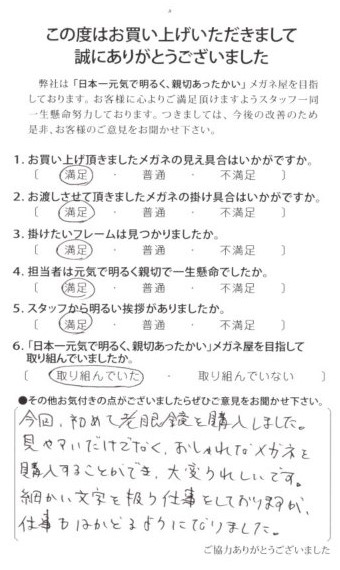 この度はお買い上げいただきまして
誠にありがとうございました
弊社は「日本一元気で明るく、親切あったかい」メガネ屋を目指
しております。お客様に心よりご満足頂けますようスタッフ一同
一生懸命努力しております。つきましては、今後の改善のため
是非、お客様のご意見をお聞かせ下さい。
1. お買い上げ頂きましたメガネの見え具合はいかがですか。
〔 満足 ・ 普通 ・ 不満足 〕
2. お渡しさせて頂きましたメガネの掛け具合はいかがですか。
〔 満足 ・ 普通 ・ 不満足 〕
3. 掛けたいフレームは見つかりましたか。
〔 満足 ・ 普通 ・ 不満足 〕
4. 担当者は元気で明るく親切で一生懸命でしたか。
〔 満足 ・ 普通 ・ 不満足 〕
5. スタッフから明るい挨拶がありましたか。
〔 満足 ・ 普通 ・ 不満足 〕
6. 「日本一元気で明るく、親切あったかい」メガネ屋を目指して
取り組んでいましたか。
〔 取り組んでいた ・ 取り組んでいない 〕
●その他お気付きの点がございましたらぜひご意見をお聞かせ下さい。
今回、初めて老眼鏡を購入しました。
見やすいだけでなく、おしゃれなメガネを
購入することができ、大変うれしいです。
細かい文字を扱う仕事をしておりますが、
仕事もはかどるようになりました。
ご協力ありがとうございました